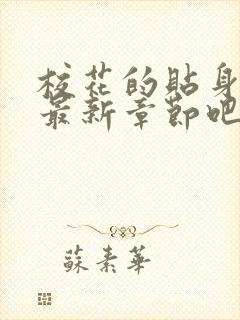 校花的貼身
最新章節吧
蘇素華